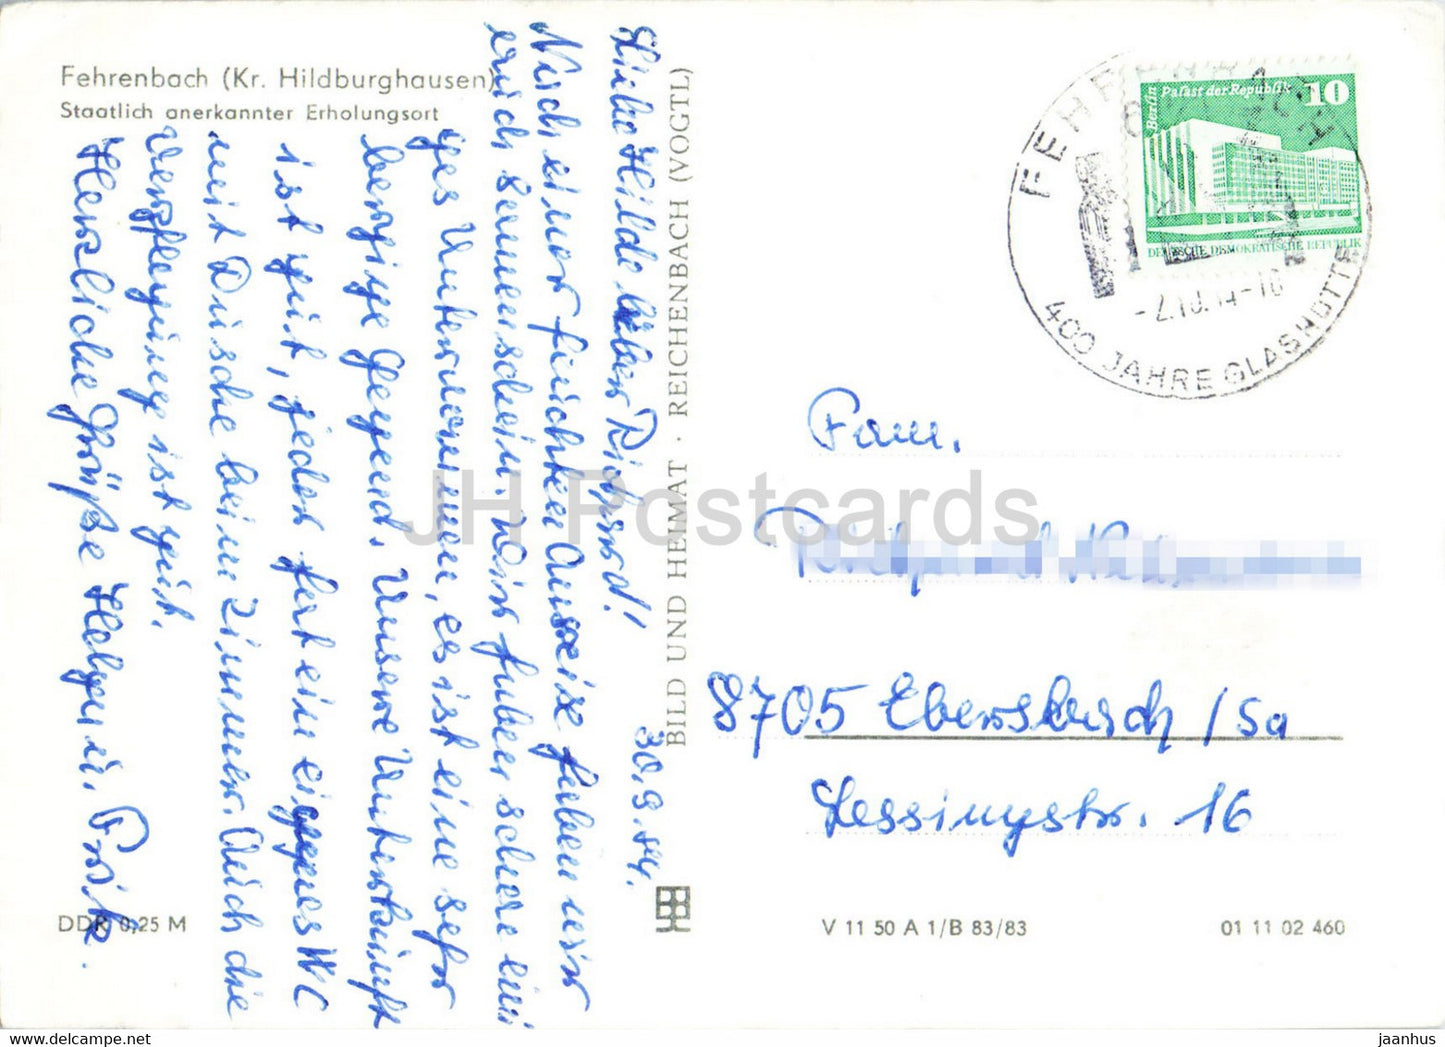 Fehrenbach (Kr. Hildburghausen)
Staatlich anerkannter Erholungsort
30.9.84.
Liebe Hilde lieber Richard!
Nach einer feuchten Anreise haben wir
auch Sonnenschein. Wir haben schon eini
ges Unternommen, es ist eine sehr
bergige Gegend. Unsere Unterkunft
ist gut, jeder hat ein eigenes WC
mit Dusche beim Zimmer. Auch die
Verpflegung ist gut.
Herzliche Grüße Helga u. Fritz.
DDR 0,25 M
BILD UND HEIMAT · REICHENBACH (VOGTL)
Berlin Palast der Republik 10
DEUTSCHE DEMOKRATISCHE REPUBLIK
FEHRENBACH
400 JAHRE GLASHÜTTE
Fam.
8705 Ebersbach / Sa
Lessingstr. 16
V 11 50 A 1/B 83/83
01 11 02 460
JH Postcards
www.delcampe.net
jaanhus